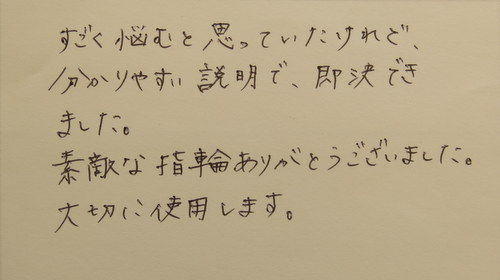 すごく悩むと思っていたけれど、
分かりやすい説明で、即決でき
ました。
素敵な指輪ありがとうございました。
大切に使用します。